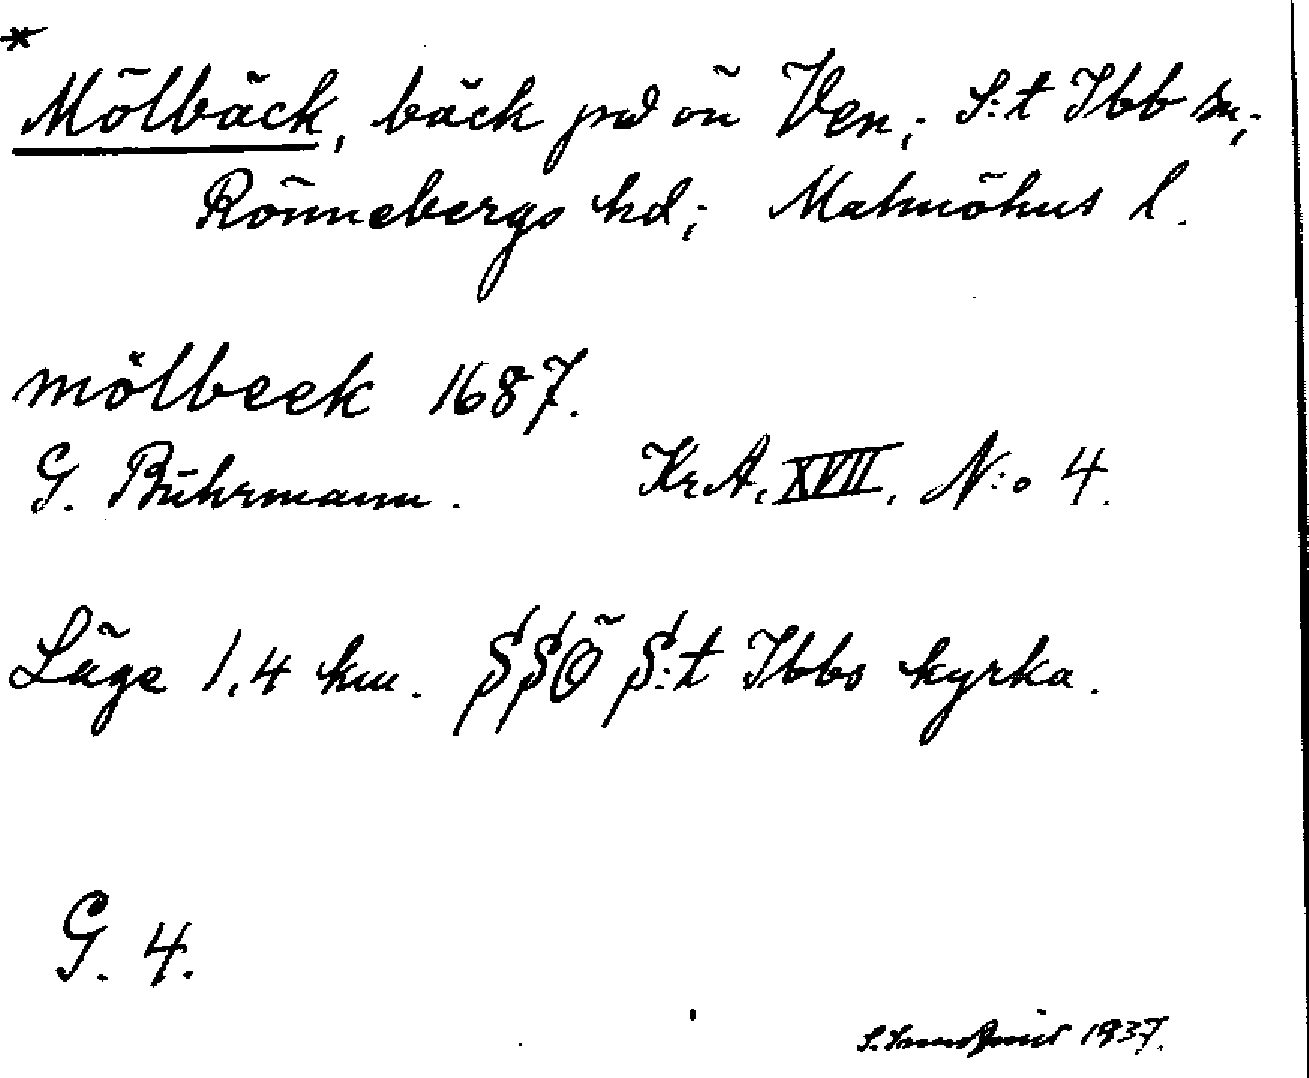 *
Mölbäck, bäck på ön Ven; S:t Ibb sn;
Rönnebergs hd; Malmöhus l.
mölbeck 1687.
G. Buhrmann. KrA. XVII. N:o 4.
Läge 1,4 km. SSÖ S:t Ibbs kyrka.
G. 4.
1937.